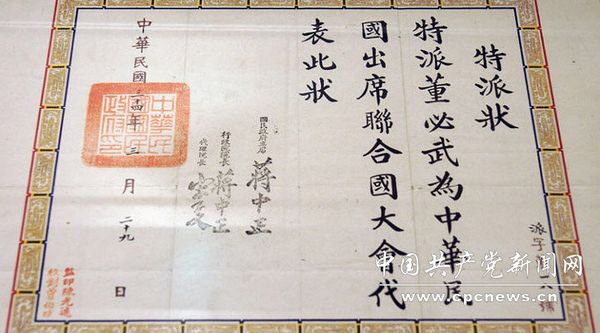 特派狀
特派董必武為中華民
國出席聯合國大會代
表此狀
國民政府主席 蔣中正
行政院院長 蔣中正
代理院長 宋子文
中華民國三十四年三月二十九日
中華民國國民政府印
派字
號
監印陳光遠
校對曾伯猗
中国共产党新闻网
www.cpcnews.cn